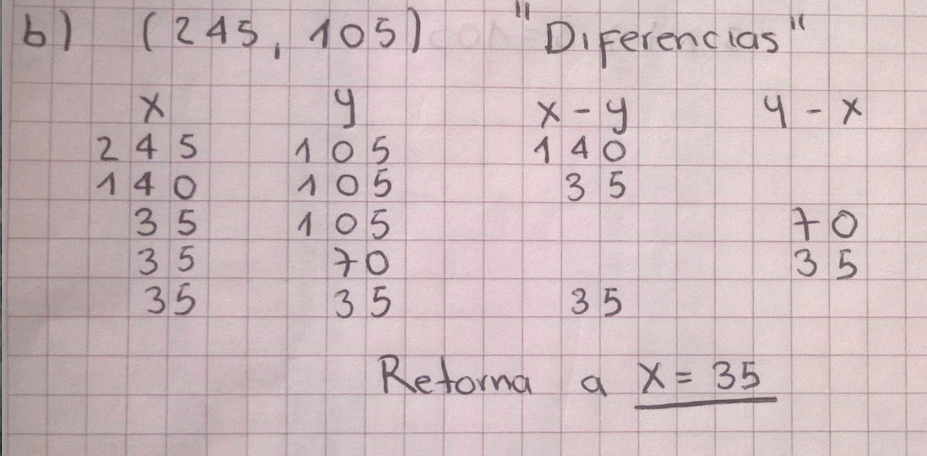 b) (245, 105) "Diferencias"
x y x - y y - x
245 105 140
140 105 35
35 105 70
35 70 35
35 35 35
Retorna a x = 35